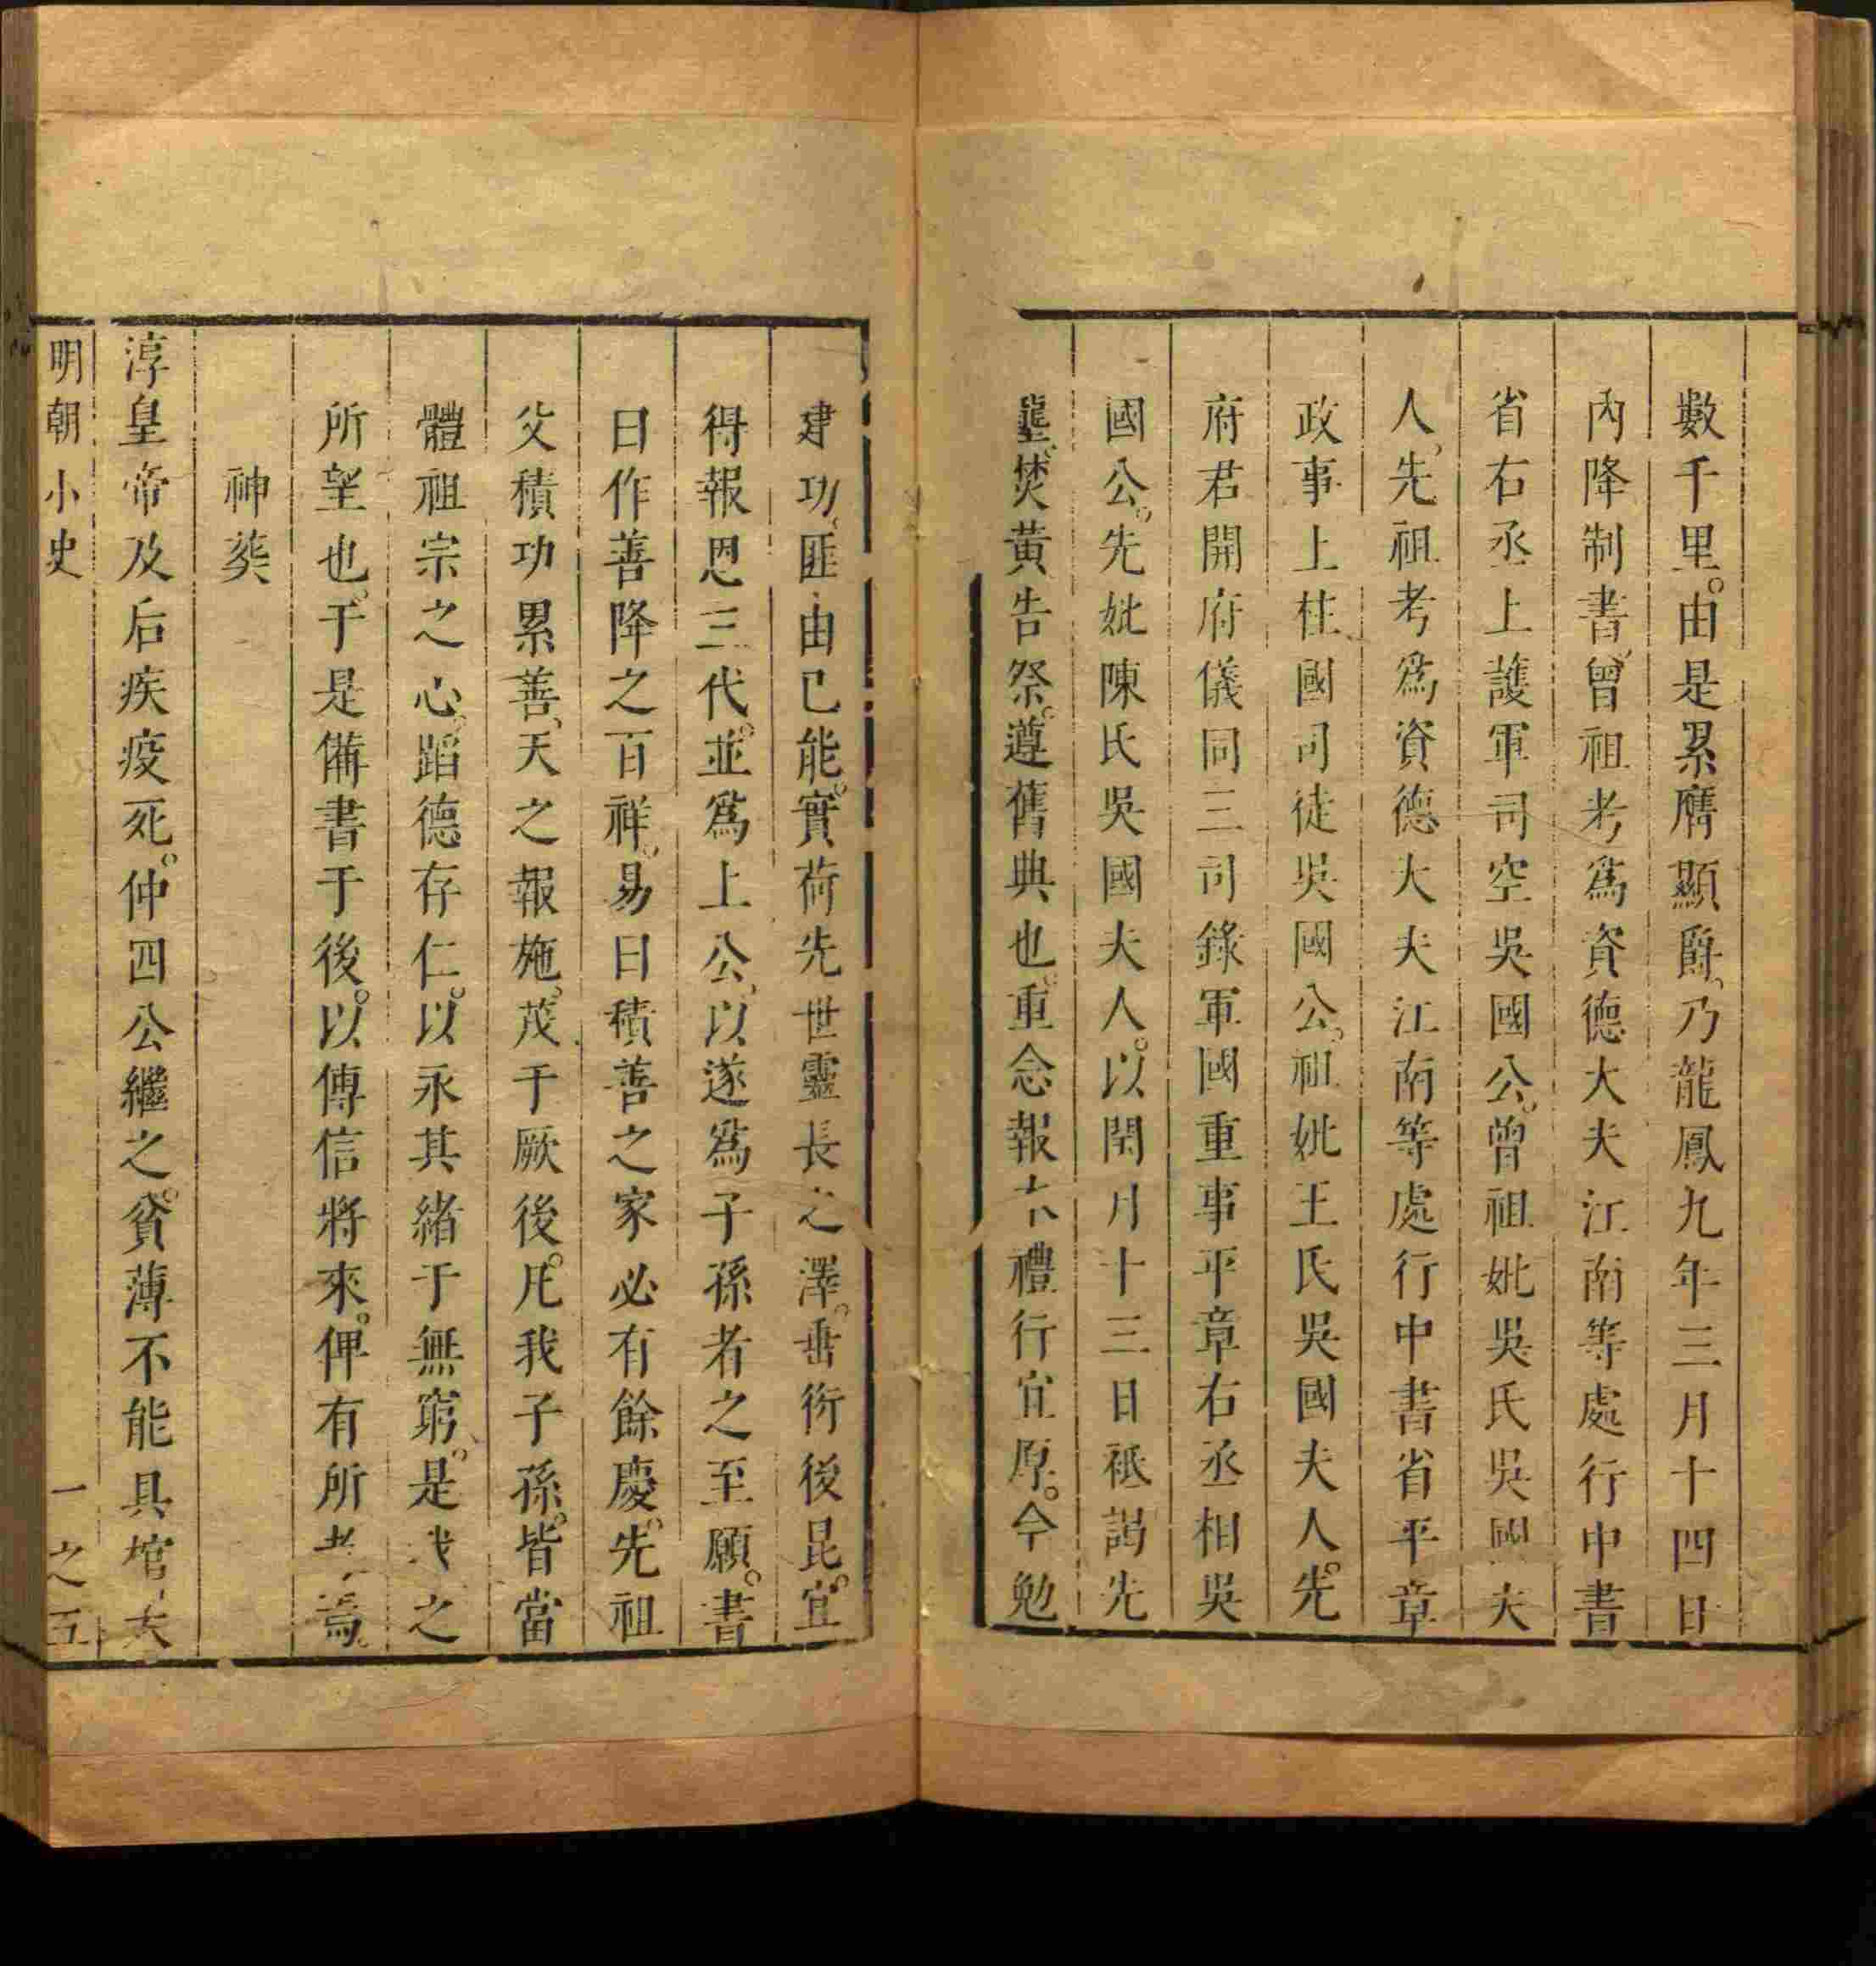 數千里。由是累膺顯爵、乃龍鳳九年三月十四日
內降制書、曾祖考爲資德大夫江南等處行中書
省右丞上護軍司空吳國公。曾祖妣吳氏吳國夫
人、先祖考爲資德大夫江南等處行中書省平章
政事上柱國司徒吳國公、祖妣王氏吳國夫人。先
府君開府儀同三司錄軍國重事平章右丞相吳
國公。先妣陳氏吳國夫人。以閏月十三日祗謁先
壟、焚黃告祭。遵舊典也。重念報本禮行宜厚。今勉
建功。匪由已能。實荷先世靈長之澤。垂衍後昆。宜
得報恩三代。並爲上公、以遂爲子孫者之至願。書
曰作善降之百祥。易曰積善之家必有餘慶。先祖
父積功累善、天之報施。茂于厥後。凡我子孫。皆當
體祖宗之心。蹈德存仁。以永其緒于無窮。是我之
所望也。于是備書于後。以傳信將來。俾有所考焉。
神葬
淳皇帝及后疾疫死。仲四公繼之。貧薄不能具棺、太
明朝小史
一之五